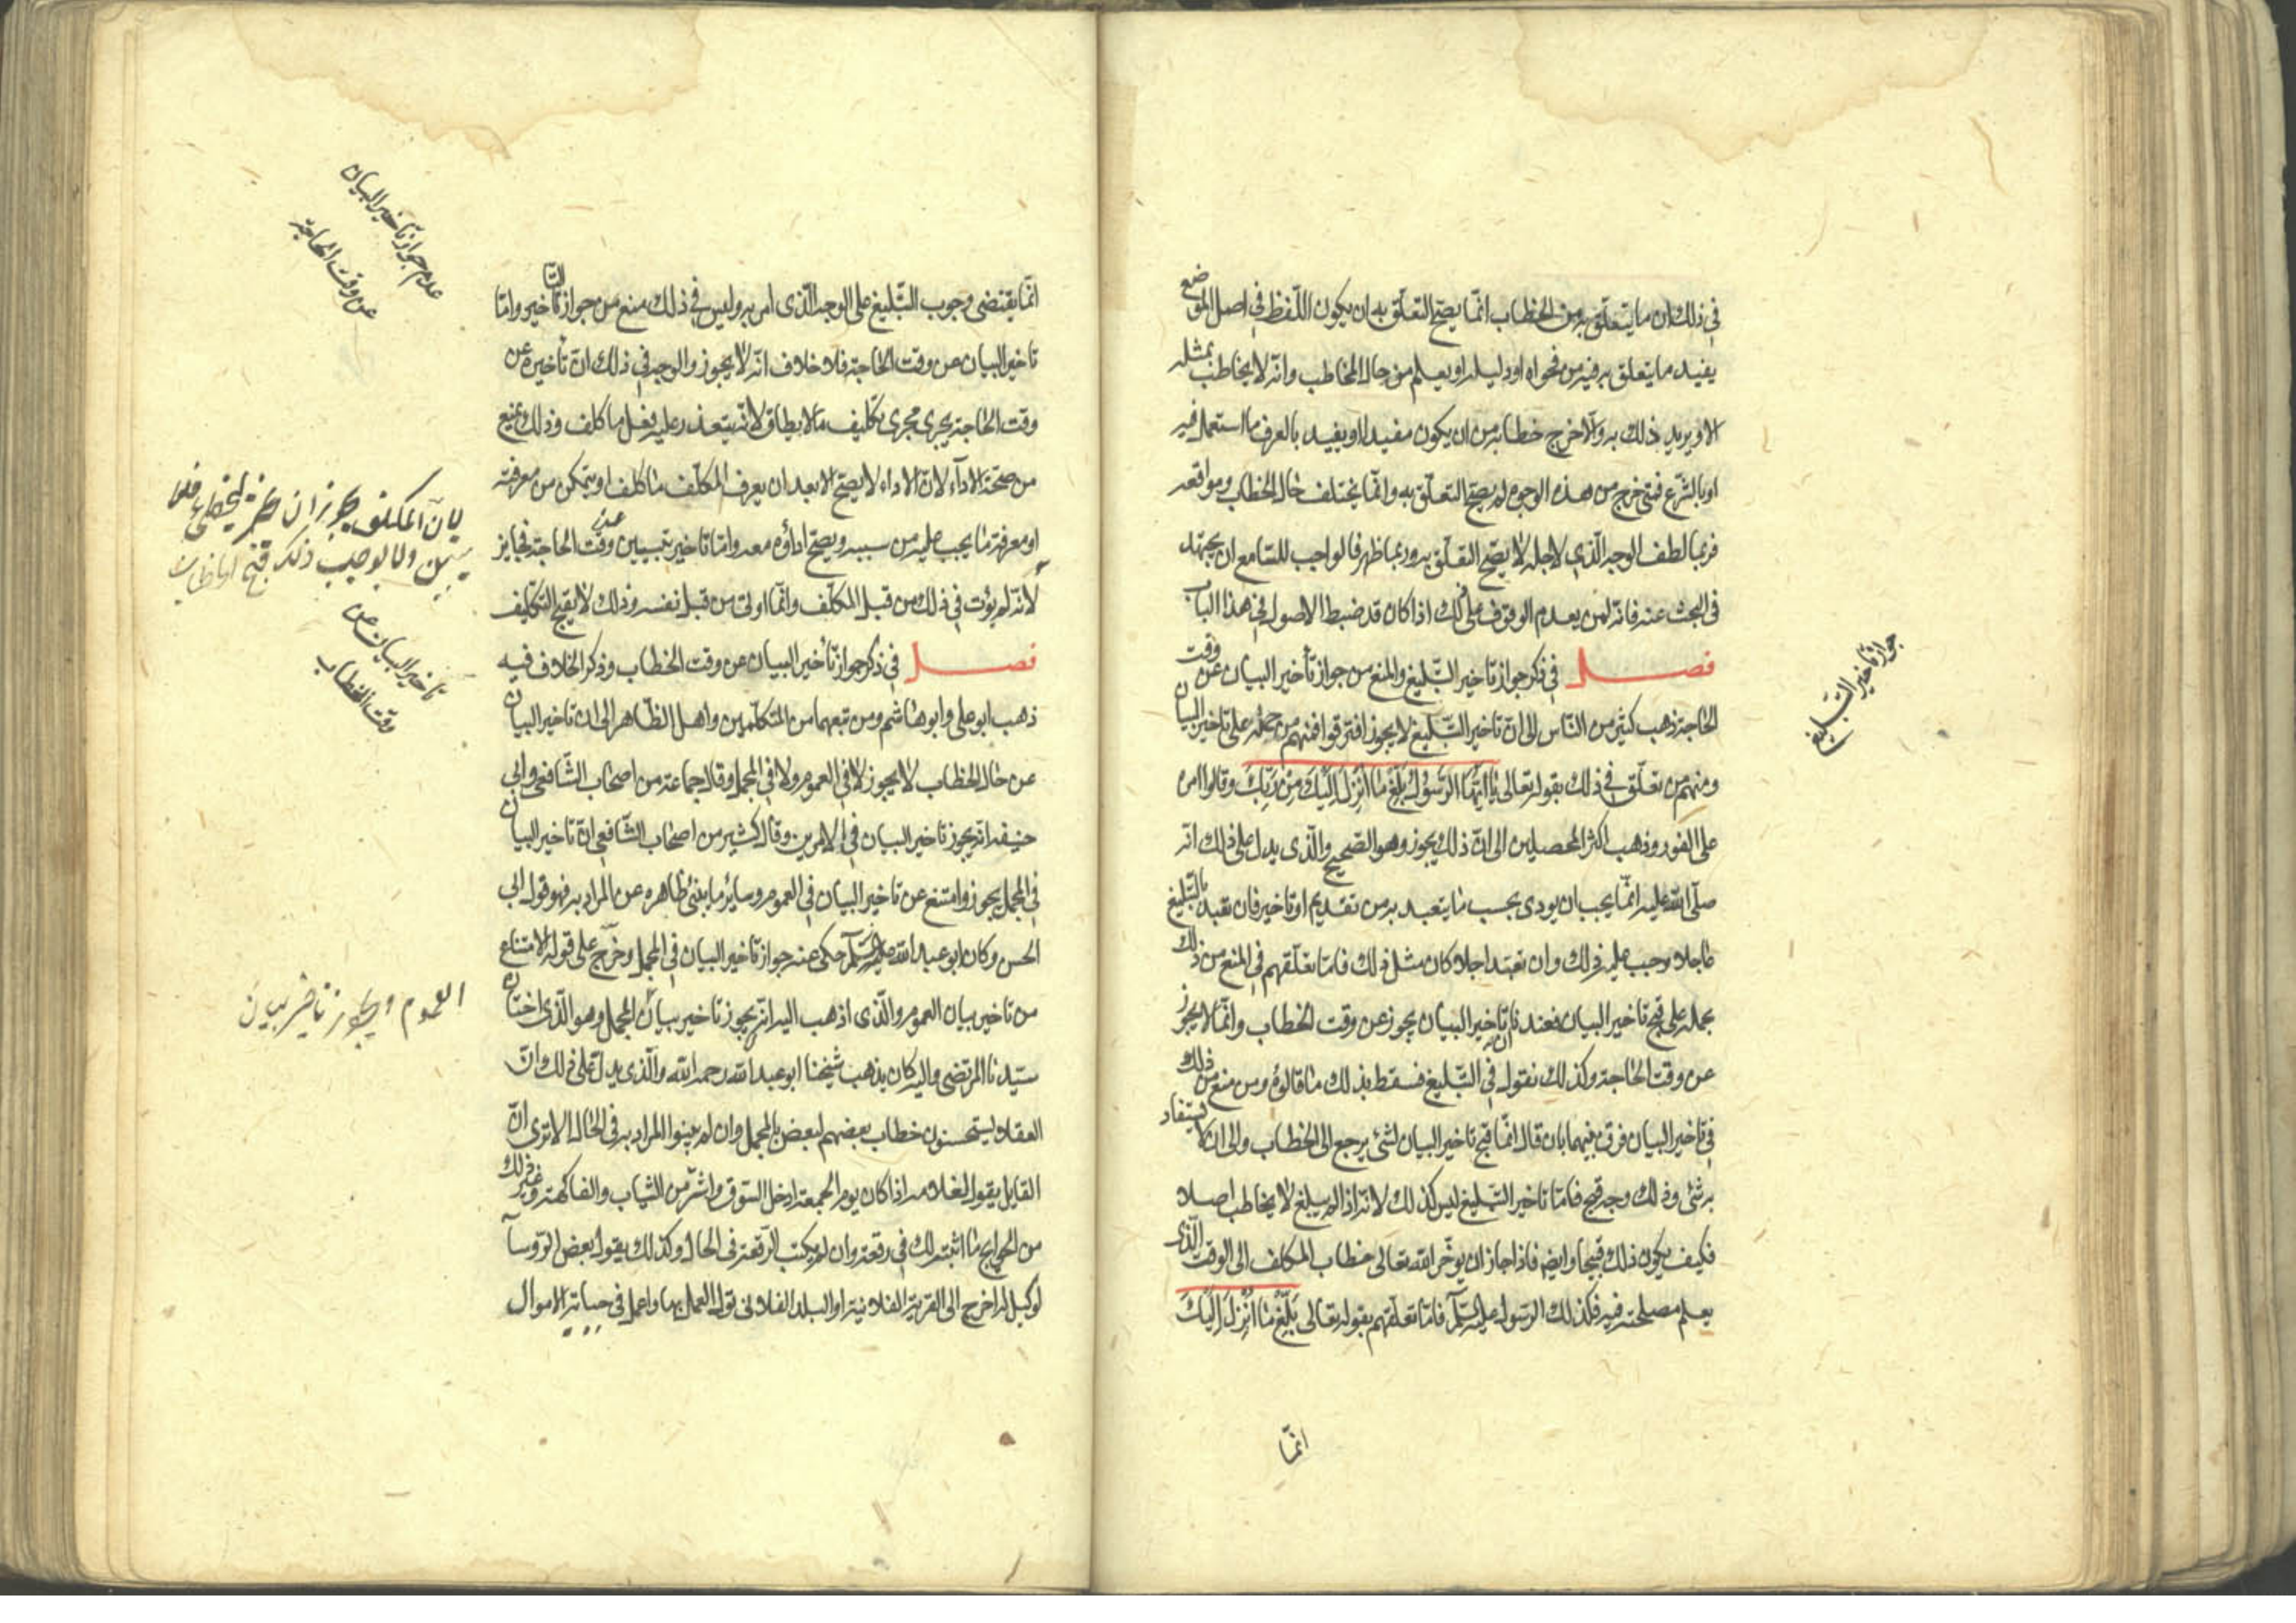 في ذلك ان ما يتعلّق به من الخطاب انّما يصحّ التعلّق به ان يكون اللّفظ في اصل الموضع
يفيد ما يتعلق به فيه من فحواه او دليله او يعلم من حال المخاطب وانّه لا يخاطب بمثله
الا ويريد ذلك به والّا خرج خطابه من ان يكون مفيدا او يفيد بالعرف ما استعمل فيه
او بالشّرع فمتى خرج من هذه الوجوه لم يصحّ التعلّق به وانّما يختلف حال الخطاب ومواقعه
فربما لطف الوجه الّذي لاجله لا يصّح التعلّق به وربما ظهر فالواجب للسّامع ان يجتهد
في البحث عنه فانّه لن يعدم الوقوف على ذلك اذا كان قد ضبط الاصول في هذا الباب
فصل في ذكر جواز تاخير التّبليغ والمنع من جواز تأخير البيان عن وقت
الحاجة ذهب كثير من النّاس الى انّ تاخير التّبليغ لا يجوز افترقوا فمنهم من حمله على تاخير البيان
ومنهم من تعلّق في ذلك بقوله تعالى يا ايّها الرّسول بلّغ ما انزل اليك من ربّك وقالوا امره
على الفور وذهب اكثر المحصلين الى انّ ذلك يجوز وهو الصّحيح والّذى يدل على ذلك انّه
صلّى الله عليه انّما يجب ان يودى بحسب ما يتعبد به من تقديم او تاخير فان تعبد بالتّبليغ
عاجلا وجب عليه ذلك وان تعبد اجلا كان مثل ذلك فامّا تعلّقهم في المنع من ذلك
بحمله على قبح تاخير البيان فعندنا انّ تاخير البيان يجوز عن وقت الخطاب وانّما لا يجوز
عن وقت الحاجة وكذلك نقول في التّبليغ فسقط بذلك ما قالوه ومن منع من ذلك
في تاخير البيان فرق بينهما بان قال انّما قبح تاخير البيان لشئ يرجع الى الخطاب والى ان لا يستفاد
به شئ وذلك وجه قبح فامّا تاخير التّبليغ ليس كذلك لانّه اذا لم يبلغ لا يخاطب اصلا
فكيف يكون ذلك قبيحا وايضا فاذا جاز ان يوخّر الله تعالى خطاب المكلف الى الوقت الّذى
يعلم مصلحته فيه فكذلك الرّسول عليه السّلم فامّا تعلّقهم بقوله تعالى بلّغ ما انزل اليك
انّما
جواز تاخير التّبليغ
انّما يقتضى وجوب التّبليغ على الوجه الّذى امر به وليس في ذلك منع من جواز التّاخير وامّا
تاخير البيان عن وقت الحاجة فلا خلاف انّه لا يجوز والوجه في ذلك انّ تأخيره عن
وقت الحاجة يجرى مجرى تكليف ما لا يطاق لانّه يتعذر عليه فعل ما كلف وذلك يمنع
من صحّة الادآء لانّ الاداء لا يصحّ الا بعد ان يعرف المكلّف ما كلف او يتمكن من معرفته
او معرفة ما يجب عليه من سببه ويصحّ اداؤه معه وامّا تاخير تبيين عن وقت الحاجة فجايز
لانّه لم يؤت في ذلك من قبل المكلّف وانّما اوتى من قبل نفسه وذلك لا يقبح التكليف
فصل في ذكر جواز تأخير البيان عن وقت الخطاب وذكر الخلاف فيه
ذهب ابو على وابو هاشم ومن تبعهما من المتكلّمين واهل الظّاهر الى ان تاخير البيان
عن حال الخطاب لا يجوز لا في العموم ولا في المجمل وقال جماعة من اصحاب الشّافعى وابى
حنيفه انّه يجوز تاخير البيان في الامرين وقال كثير من اصحاب الشّافعى انّ تاخير البيان
في المجمل يجوز وامتنع عن تاخير البيان في العموم وساير ما ينبئ ظاهره عن المراد به فهو قول ابى
الحسن وكان ابو عبد الله عليه السّلم حكى عنه جواز تاخير البيان في المجمل وخرّج على قوله الامتناع
من تاخير بيان العموم والّذى اذهب اليه انّه يجوز تاخير بيان المجمل وهو الّذى اختاره
سيّدنا المرتضى واليه كان يذهب شيخنا ابو عبد الله رحمه الله والّذى يدلّ على ذلك انّ
العقلاء يستحسنون خطاب بعضهم لبعض بالمجمل وان لم يبينوا المراد به في الحال الا ترى انّ
القايل يقول لغلامه اذا كان يوم الجمعة ادخل السّوق واشتر من الثّياب والفاكهة وغير ذلك
من الحوايج ما اثبته لك في رقعة وان لم يكتب الرّقعة في الحال وكذلك يقول بعض الرّوسآ
لوكيله اخرج الى القرية الفلانية او البلد الفلانى تول العمل بها واعمل في جباية الاموال
عدم جواز تاخير البيان
عن وقت الحاجة
بان المكلف يجوز ان
ذلك قبح
تاخير البيان عن
وقت الخطاب
العموم ويجوز تاخير بيان